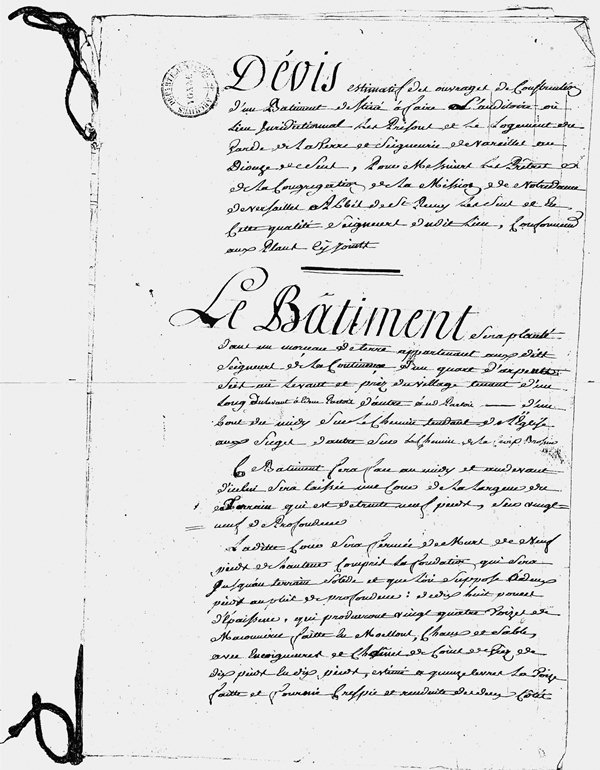 Dévis estimatif des ouvrages de Construction
d'un Batiment à faire L'auditoire ou
Lieu Juridictionnal et Le Logement du
Garde de La Terre et Seigneurie de au
Diocèze de Sens, Pour Messieurs Les Prêtres
de La Congrégation de La Mission de Notre Dame
de Versailles Abbé de St Remy Les Sens et En
Cette qualité Seigneurs dudit Lieu, Conformement
aux Plans Cy Joints
Le Bâtiment Sera planté
dans un morceau de terre appartenant aux dits
Seigneurs de La Continence d'un quart d'arpent
Sis au Levant et près du village tenant d'un
Long du Levant à d'autre à — d'un
bout du midy Sur Le Chemin tendant de L'Eglise
aux d'autre Sur Le Chemin de La Croix
Ce Batiment fera face au midy et audevant
d'icelui Sera laissée une Cour de La Largeur du
Terrain qui est de trente neuf pieds, Sur vingt
neuf de Profondeur
Laditte Cour Sera fermée de Murs de Neuf
pieds de hauteur Compris La fondation qui Sera
Jusqu'au terrain Solide et que L'on Suppose de deux
pieds de profondeur: de dix huit pouces
d'Epaisseur, qui produiront vingt quatre Toizes de
Maconnerie faitte En Moellons, Chaux et Sable,
avec Encoignures et Chaînes de de Grez de
dix pieds En dix pieds, estimé a quinze Livres La Toize
faitte et fournie Crespie et enduitte des deux Côtés